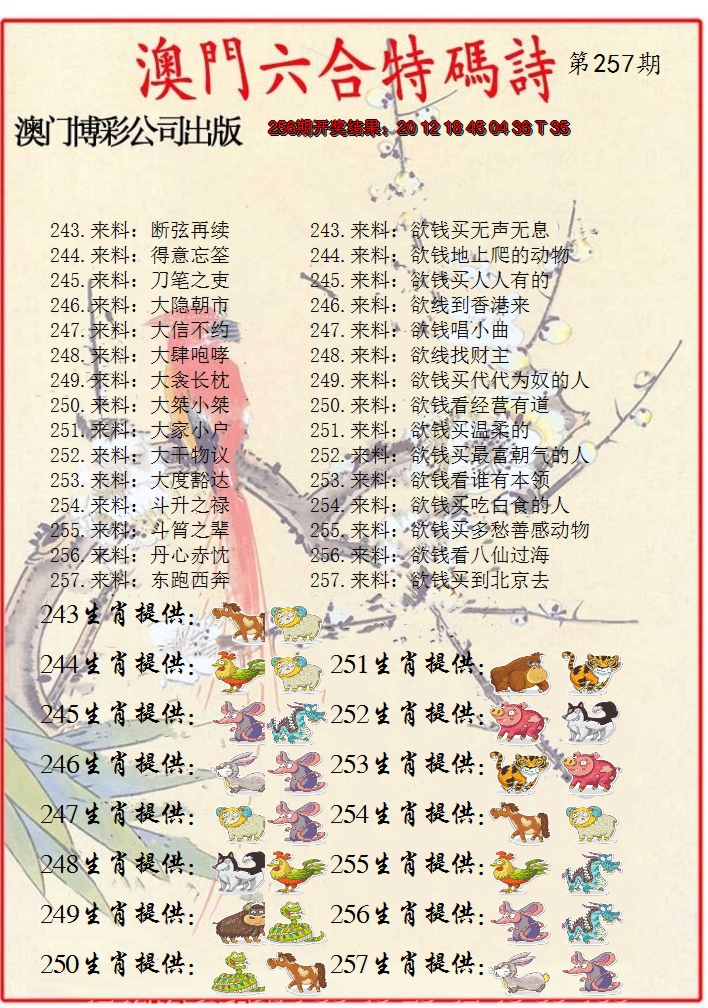 澳門六合特碼詩 第257期
澳门博彩公司出版 256期开奖结果：20 12 18 45 04 36 T 35
243.来料：断弦再续 243.来料：欲钱买无声无息
244.来料：得意忘筌 244.来料：欲钱地上爬的动物
245.来料：刀笔之吏 245.来料：欲钱买人人有的
246.来料：大隐朝市 246.来料：欲线到香港来
247.来料：大信不约 247.来料：欲钱唱小曲
248.来料：大肆咆哮 248.来料：欲线找财主
249.来料：大衾长枕 249.来料：欲钱买代代为奴的人
250.来料：大桀小桀 250.来料：欲钱看经营有道
251.来料：大家小户 251.来料：欲钱买温柔的
252.来料：大干物议 252.来料：欲钱买最富朝气的人
253.来料：大度豁达 253.来料：欲钱看谁有本领
254.来料：斗升之禄 254.来料：欲钱买吃白食的人
255.来料：斗筲之辈 255.来料：欲钱买多愁善感动物
256.来料：丹心赤忱 256.来料：欲钱看八仙过海
257.来料：东跑西奔 257.来料：欲钱买到北京去
243生肖提供：
244生肖提供： 251生肖提供：
245生肖提供： 252生肖提供：
246生肖提供： 253生肖提供：
247生肖提供： 254生肖提供：
248生肖提供： 255生肖提供：
249生肖提供： 256生肖提供：
250生肖提供： 257生肖提供：